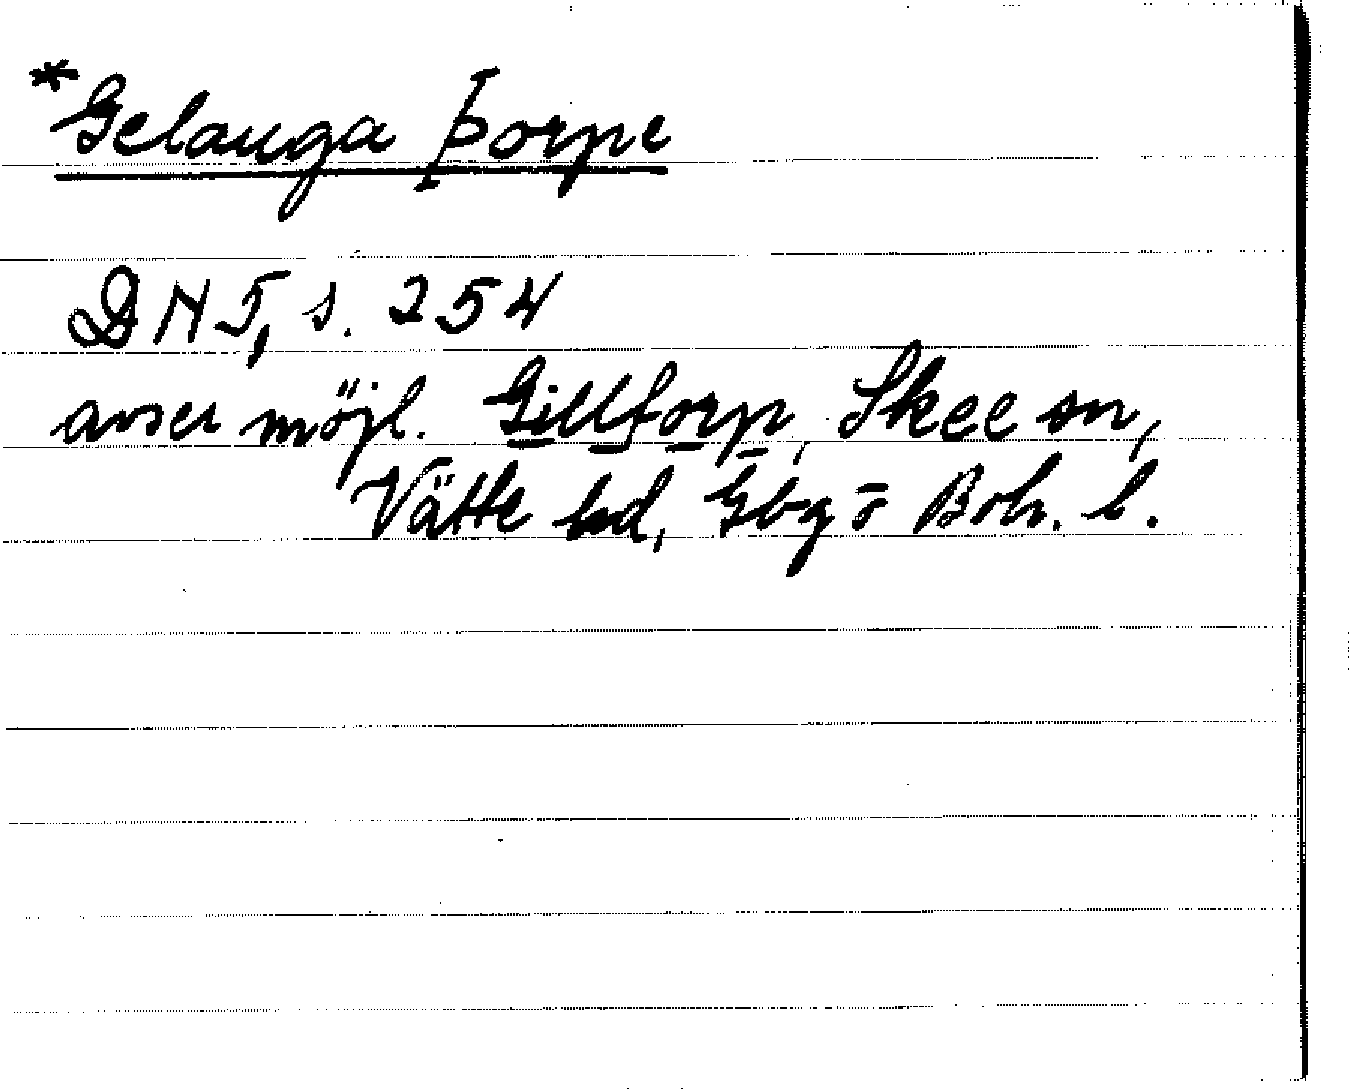 *Gelauga Þorpe
DN 5, s. 254
anser möjl. Gillforp, Skee sn,
Vätte hd, Gbg o Boh. l.